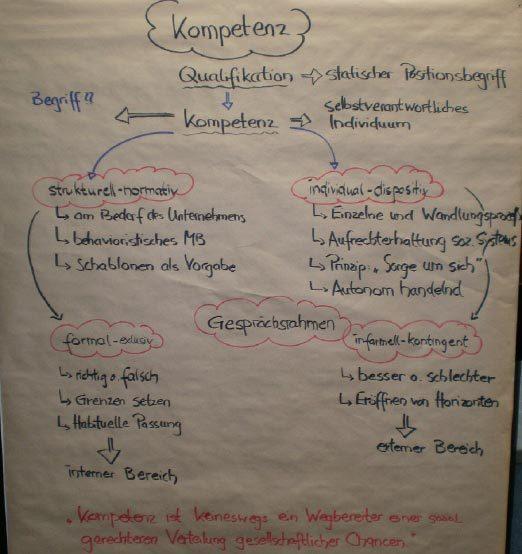 Kompetenz
Qualifikation ⇨ statischer Positionsbegriff
Begriff??
Kompetenz ⇨ selbstverantwortliches
Individuum
strukturell-normativ
↳ am Bedarf des Unternehmens
↳ behavioristisches MB
↳ Schablonen als Vorgabe
individual-dispositiv
↳ Einzelne und Wandlungsprozeß
↳ Aufrechterhaltung soz. Systems
↳ Prinzip: „Sorge um sich"
↳ Autonom handelnd
Gesprächsrahmen
formal-exlusiv
↳ richtig o. falsch
↳ Grenzen setzen
↳ Habituelle Passung
interner Bereich
informell-kontingent
↳ besser o. schlechter
↳ Eröffnen von Horizonten
externer Bereich
„Kompetenz ist keineswegs ein Wegbereiter einer sozial
gerechteren Verteilung gesellschaftlicher Chancen."